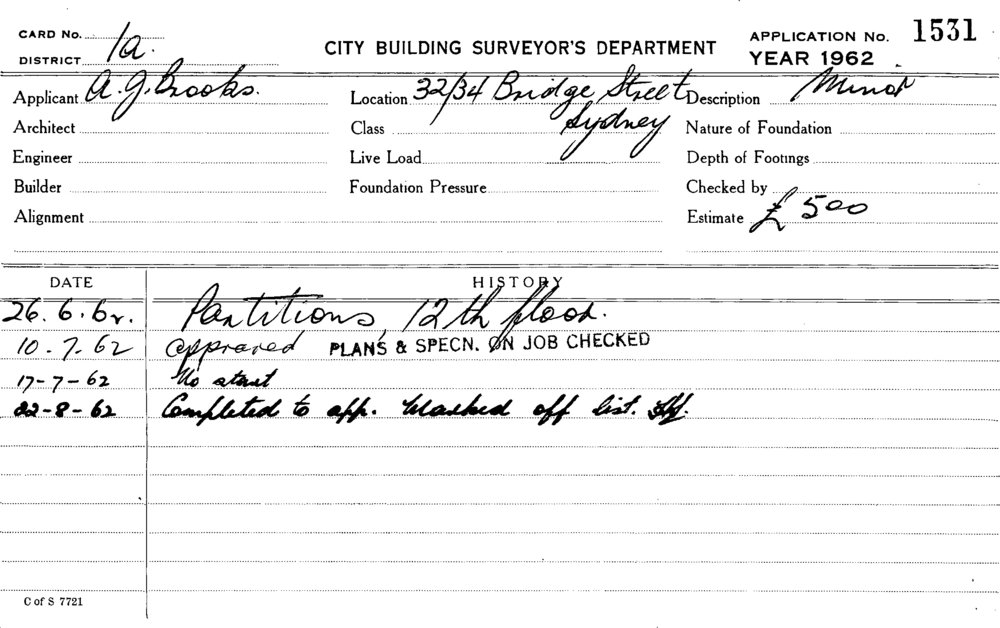 CARD No. 1a.
DISTRICT
CITY BUILDING SURVEYOR'S DEPARTMENT
APPLICATION No. 1531
YEAR 1962
Applicant A. G. Brooks.
Location 32/34 Bridge Street
Sydney
Description Minor
Architect
Class
Nature of Foundation
Engineer
Live Load
Depth of Footings
Builder
Foundation Pressure
Checked by
Alignment
Estimate £ 500
DATE HISTORY
26.6.62. Partitions, 12th floor.
10.7.62 approved PLANS & SPECN. ON JOB CHECKED
17-7-62 No start
22-8-62 Completed to app. Marked off list.
C of S 7721